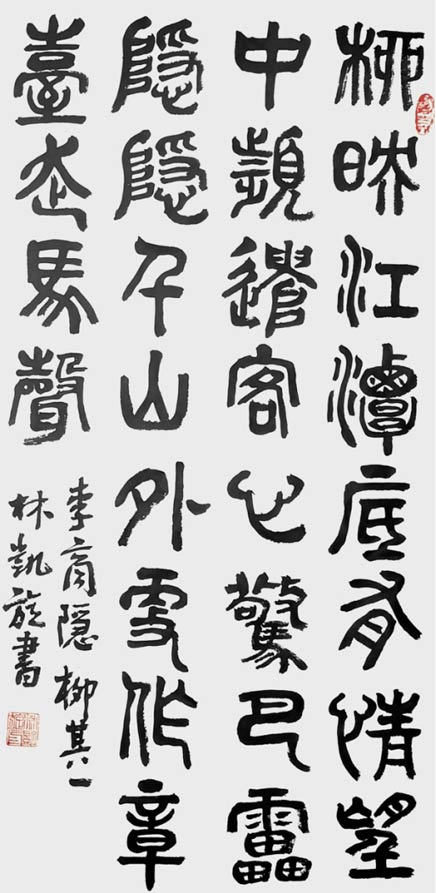 柳映江潭底有情望
中頻遣客心驚巴靁
隱隱千山外更作章
臺走馬聲
李商隐 柳其一
林凱旋書